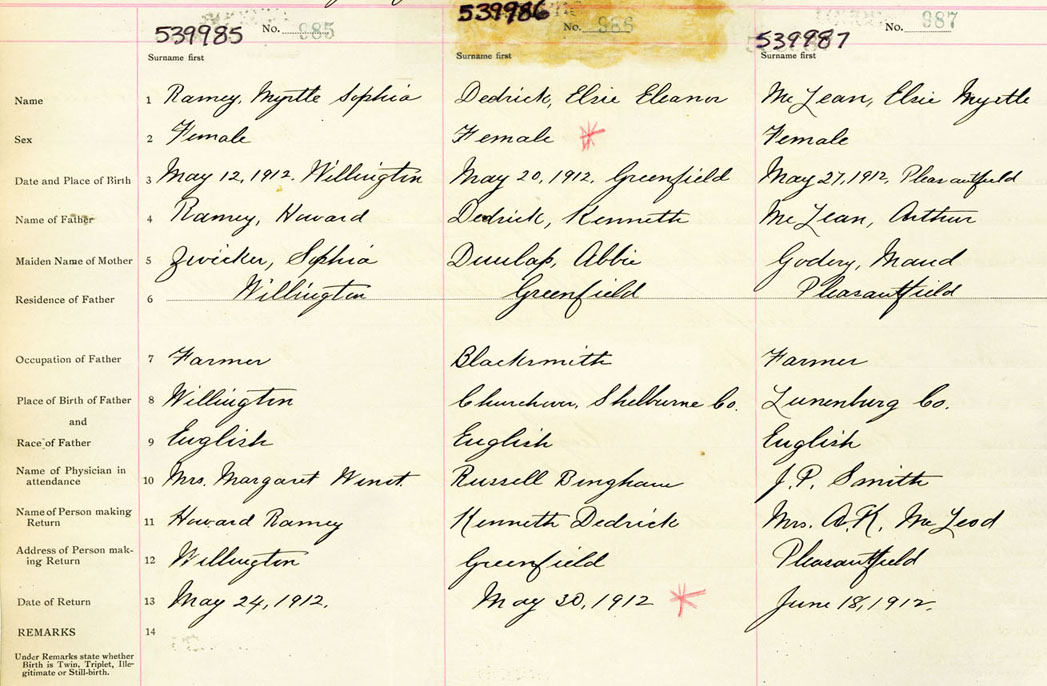 539985 No. 985 539986 No. 986 539987 No. 987
Surname first Surname first Surname first
Name 1 Ramey, Myrtle Sophia Dedrick, Elsie Eleanor McLean, Elsie Myrtle
Sex 2 Female Female Female
Date and Place of Birth 3 May 12, 1912. Willington May 20, 1912. Greenfield May 27, 1912, Pleasantfield
Name of Father 4 Ramey, Howard Dedrick, Kenneth McLean, Arthur
Maiden Name of Mother 5 Zwicker, Sophia Dunlap, Abbie Godery, Maud
Residence of Father 6 Willington Greenfield Pleasantfield
Occupation of Father 7 Farmer Blacksmith Farmer
Place of Birth of Father 8 Willington Churchover, Shelburne Co. Lunenburg Co.
and
Race of Father 9 English English English
Name of Physician in
attendance 10 Mrs. Margaret Russell Bingham J.P. Smith
Name of Person making
Return 11 Howard Ramey Kenneth Dedrick Mrs. A.K. McLeod
Address of Person mak-
ing Return 12 Willington Greenfield Pleasantfield
Date of Return 13 May 24, 1912. May 30, 1912 June 18, 1912.
REMARKS 14
Under Remarks state whether
Birth is Twin, Triplet, Ille-
gitimate or Still-birth.